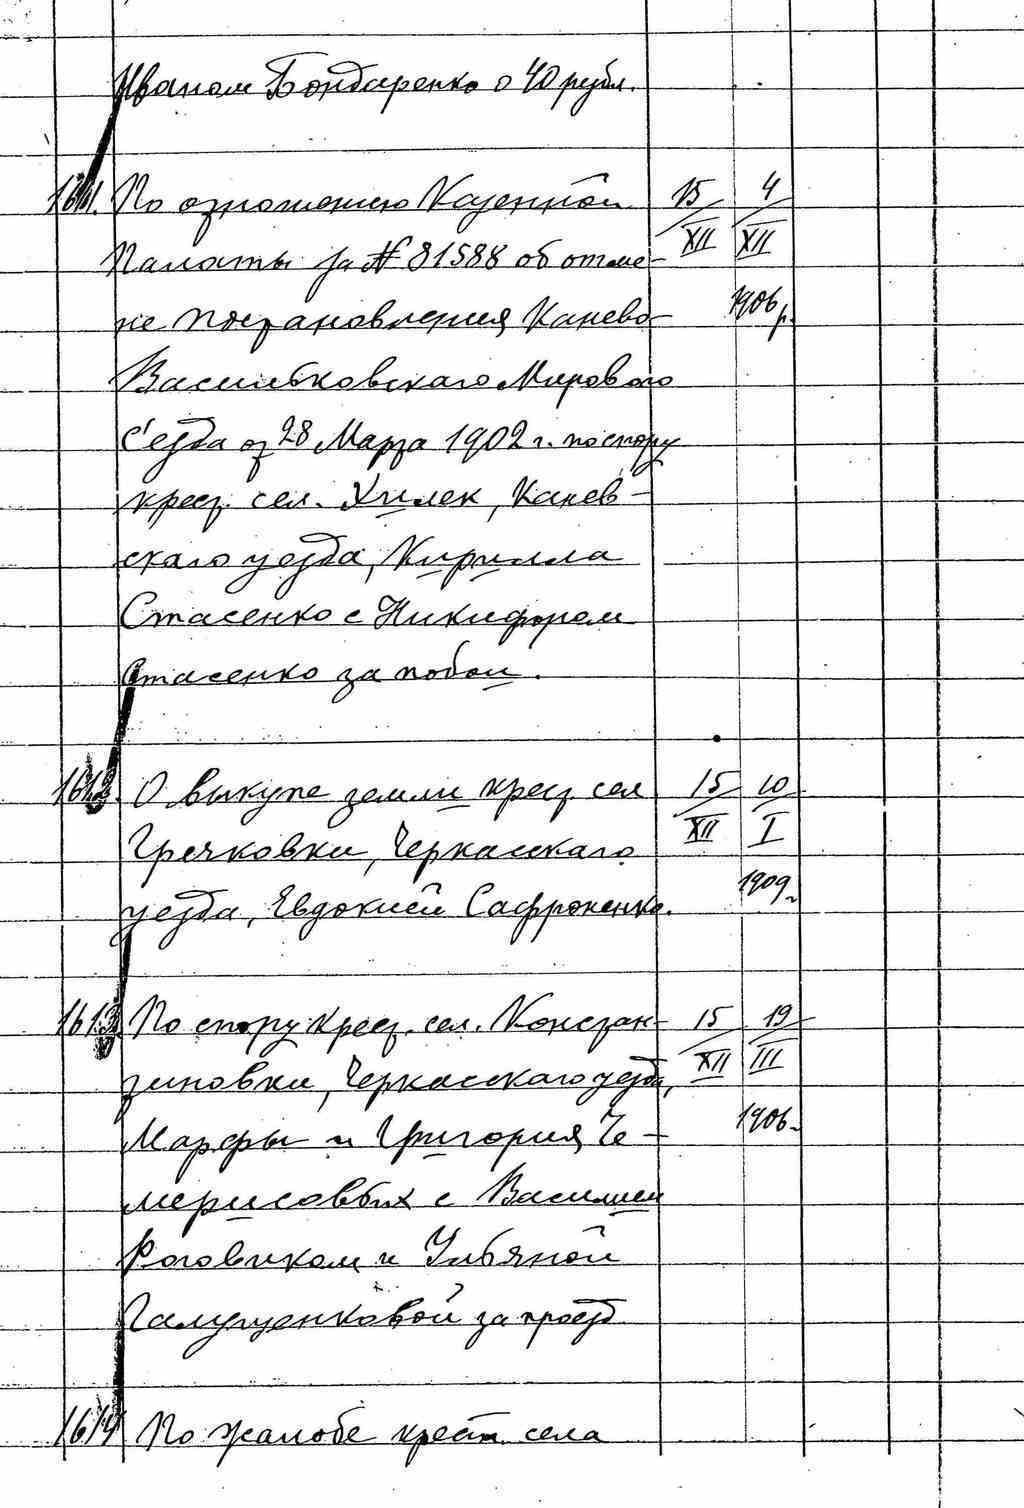 Иваном Бондаренко о 40 рубл.
1611. По отношению Казенной 15/XII 4/XII
Палаты за № 81588 об отме-
не постановления Канево- 1906 р.
Васильковскаго Мирового
С'езда от 28 Марта 1902 г. по спору
крест. сел. Хилек, Канев-
скаго уезда, Кирилла
Стасенко с Никифором
Стасенко за побои.
1612. О выкупе земли крест. сел 15/XII 10/I
Гречковки, Черкасскаго
уезда, Евдокией Сафроненко. 1909 г.
1613. По спору крест. сел. Констан- 15/XII 19/III
тиновки, Черкасскаго уезда,
Марфы и Григория Че- 1906 г.
мерисовых с Василием
Роговиком и Ульяной
Галущенковой за проезд
1614 По жалобе крест. села